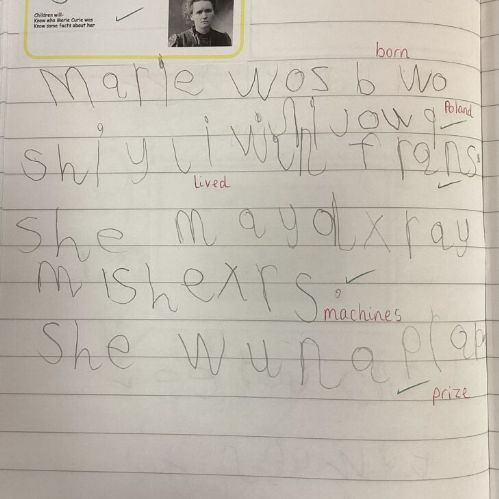 Children will-
Know who Marie Curie was
Know some facts about her
born
Marie wos b wo
Poland
shi y li with jowq
frqns
Lived
she mayd xray
mishexrs
machines
She wunaprap
prize